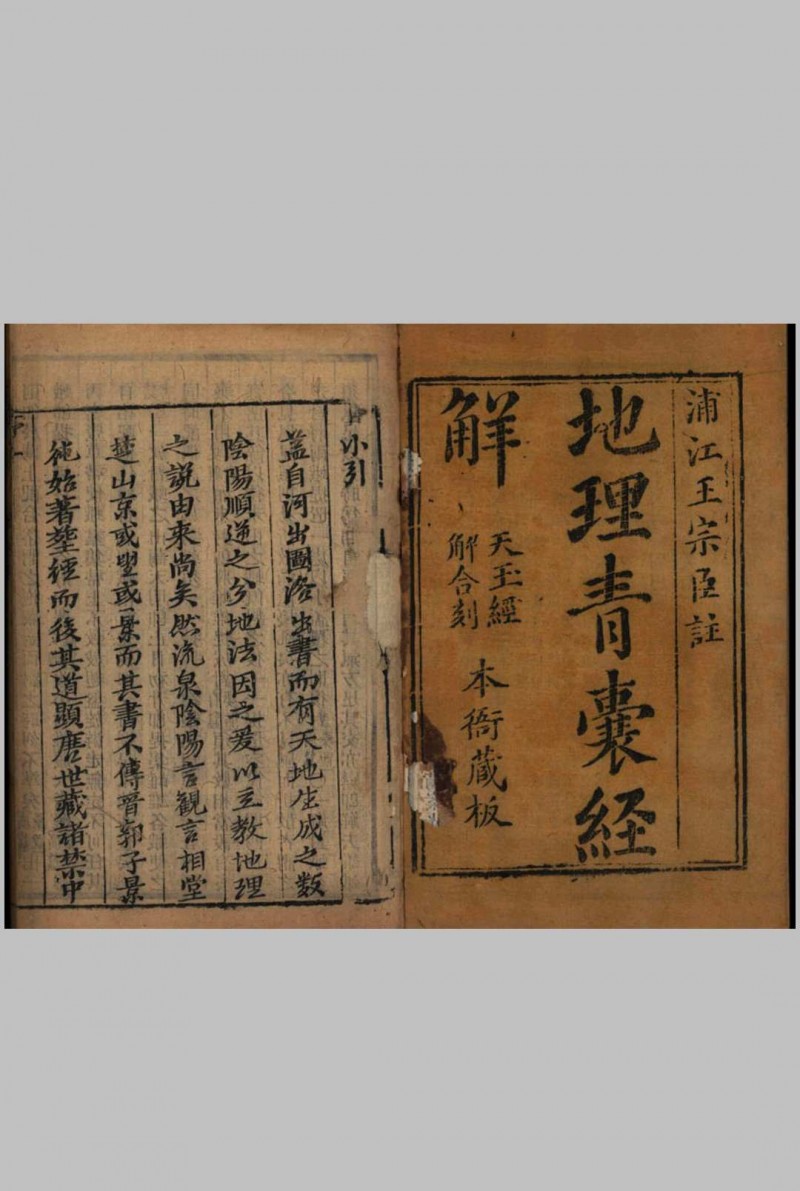 浦江王宗臣註
地理青囊経
解
天玉經
解合刻
本衙藏板
小引
蓋自河出圖洛出書而有天地生成之数
陰陽順逆之分地法因之爰以立教地理
之説由来尚矣然流泉陰陽言観言相堂
楚山京或望或景而其書不傳晋郭子景
純始著塟經而後其道顕唐世藏諸禁中